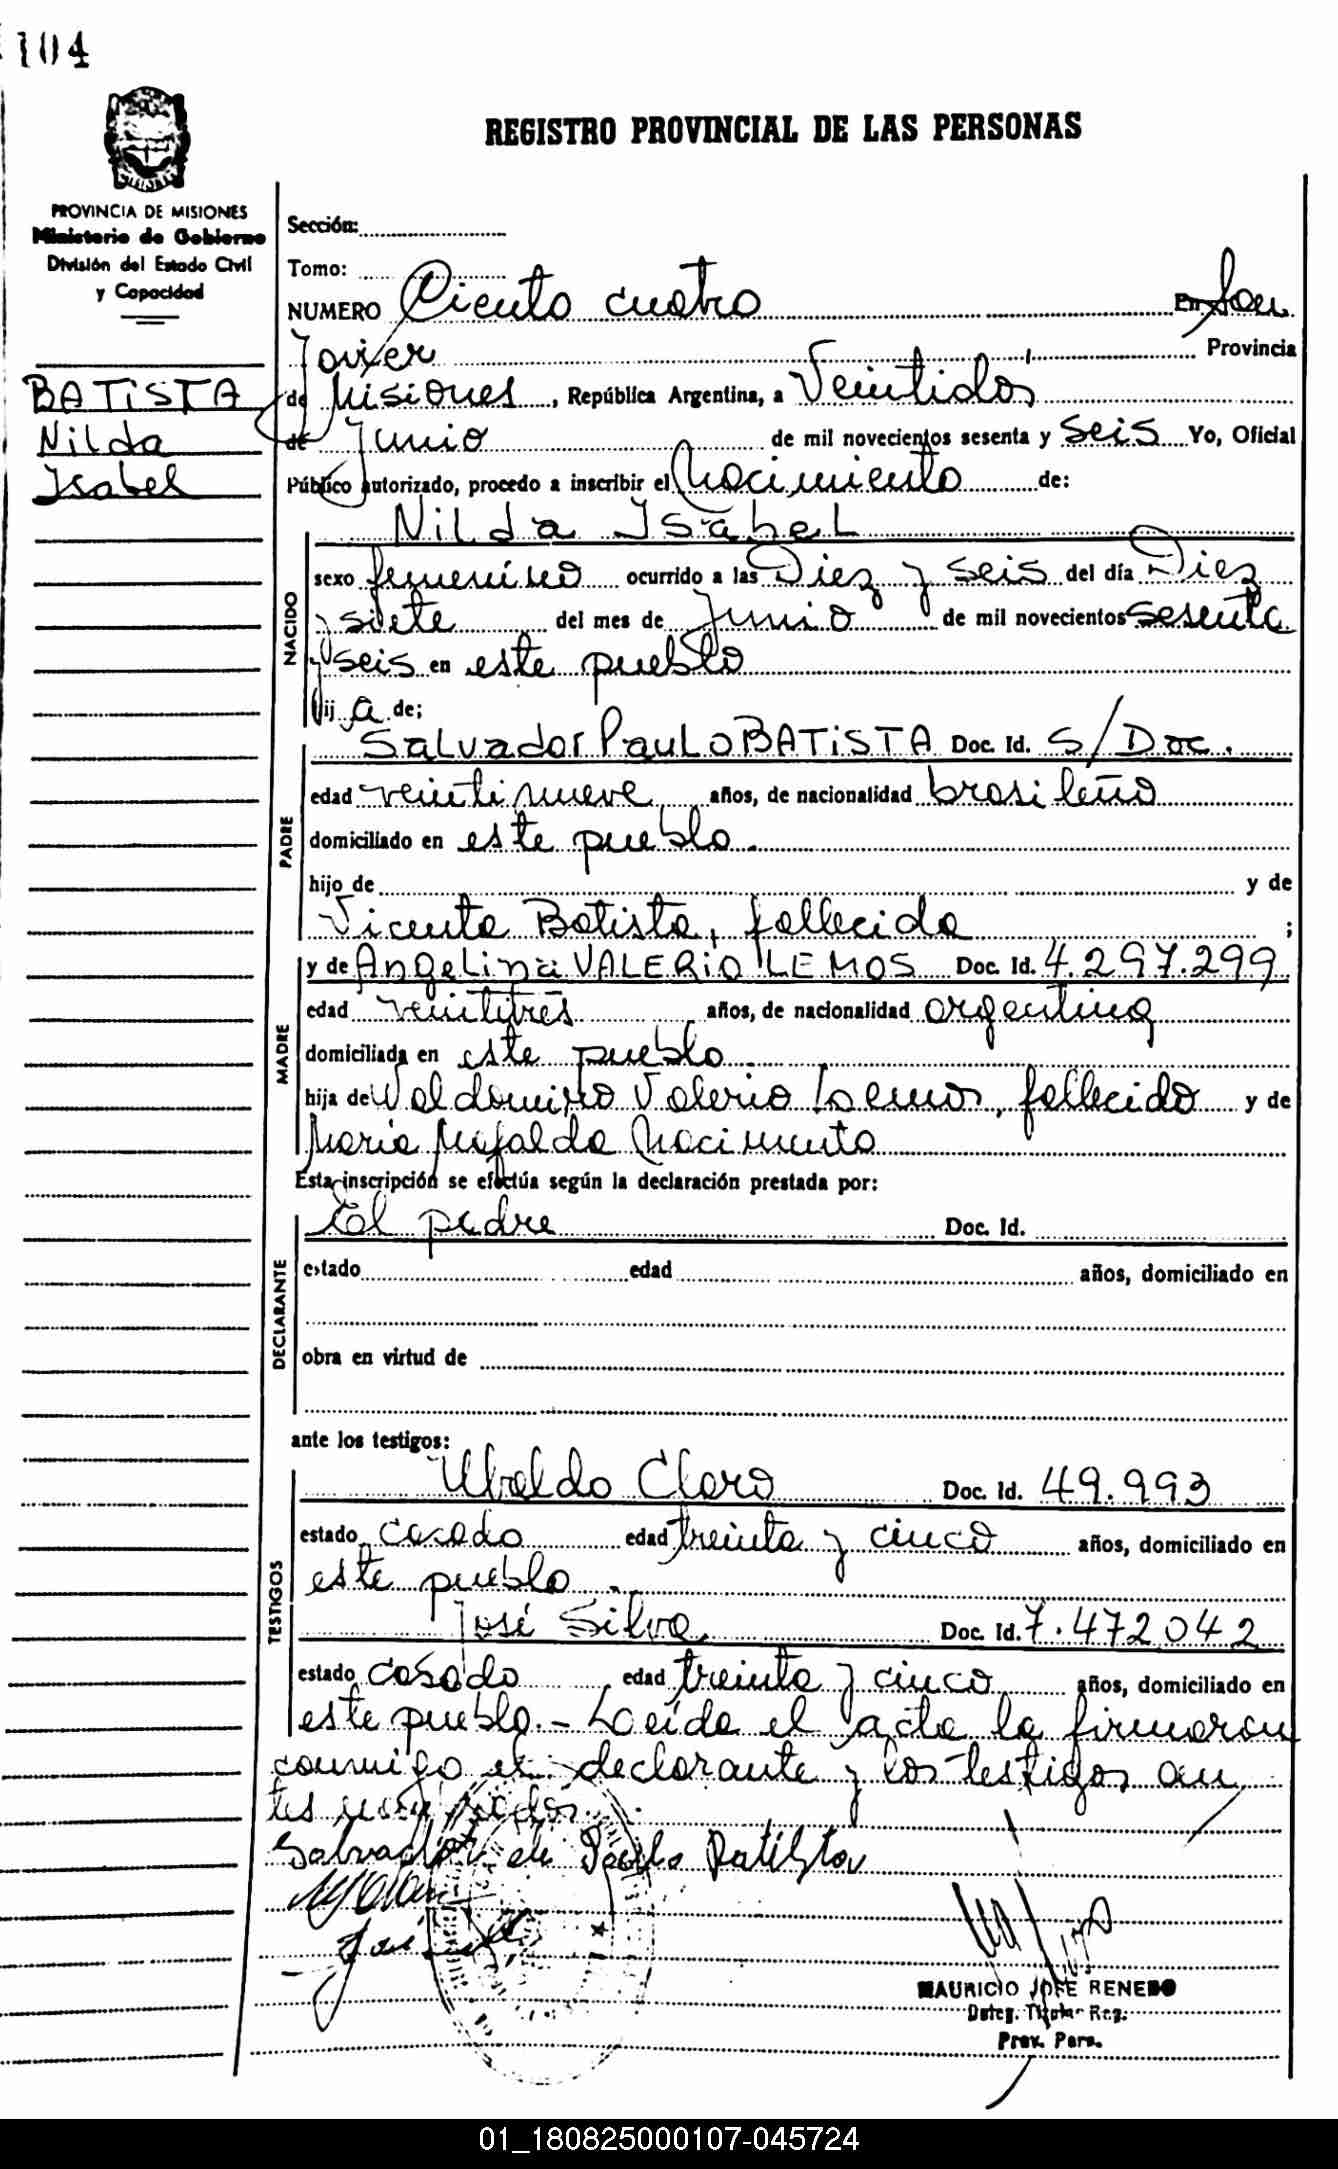 104
REGISTRO PROVINCIAL DE LAS PERSONAS
PROVINCIA DE MISIONES
Ministerio de Gobierno
División del Estado Civil
y Capacidad
BATISTA
Nilda
Isabel
Sección:
Tomo:
NUMERO Ciento cuatro En San
Javier Provincia
de Misiones, República Argentina, a Veintidos
de Junio de mil novecientos sesenta y seis Yo, Oficial
Público autorizado, procedo a inscribir el Nacimiento de:
Nilda Isabel
NACIDO
sexo femenino ocurrido a las Diez y seis del día Diez
y siete del mes de Junio de mil novecientos sesenta
y seis en este pueblo
hij a de:
PADRE
Salvador Paulo BATISTA Doc. Id. S/Doc.
edad veintinueve años, de nacionalidad brasileño
domiciliado en este pueblo.
hijo de y de
Vicenta Batista, fallecida ;
MADRE
y de Angelina VALERIO LEMOS Doc. Id. 4.297.299
edad veintitres años, de nacionalidad argentina
domiciliada en este pueblo.
hija de Waldomiro Valerio Lemos, fallecido y de
Maria Mafalda Nacimento
Esta inscripción se efectúa según la declaración prestada por:
DECLARANTE
El padre Doc. Id.
estado edad años, domiciliado en
obra en virtud de
ante los testigos:
TESTIGOS
Ubaldo Claro Doc. Id. 49.993
estado casado edad treinta y cinco años, domiciliado en
este pueblo.
José Silva Doc. Id. 7.472042
estado casado edad treinta y cinco años, domiciliado en
este pueblo.- Leída el acta la firmaron
conmigo el declarante y los testigos an
tes nombrados.
Salvador de Paulo Batista
José
MAURICIO JOSE RENEDO
Deleg. Titular Reg.
Prov. Pers.
01_180825000107-045724